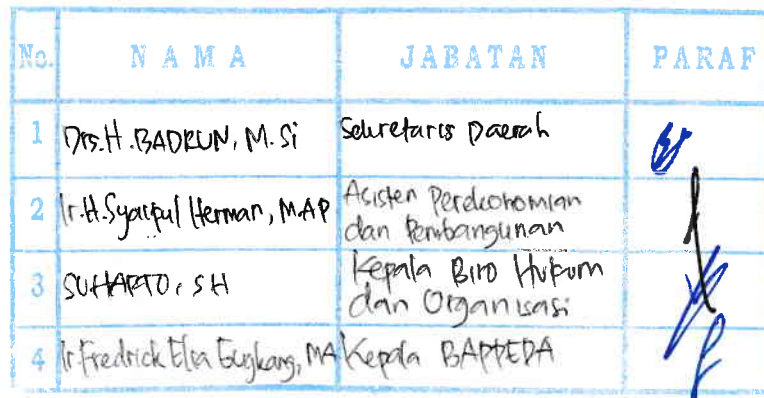 No. NAMA JABATAN PARAF
1 Drs. H. BADRUN, M. Si Sekretaris Daerah
2 Ir. H. Syaipul Herman, MAP Asisten Perekonomian
dan Pembangunan
3 SUHARTO, SH Kepala Biro Hukum
dan Organisasi
4 Ir. Fredrick Elia, MA Kepala BAPPEDA